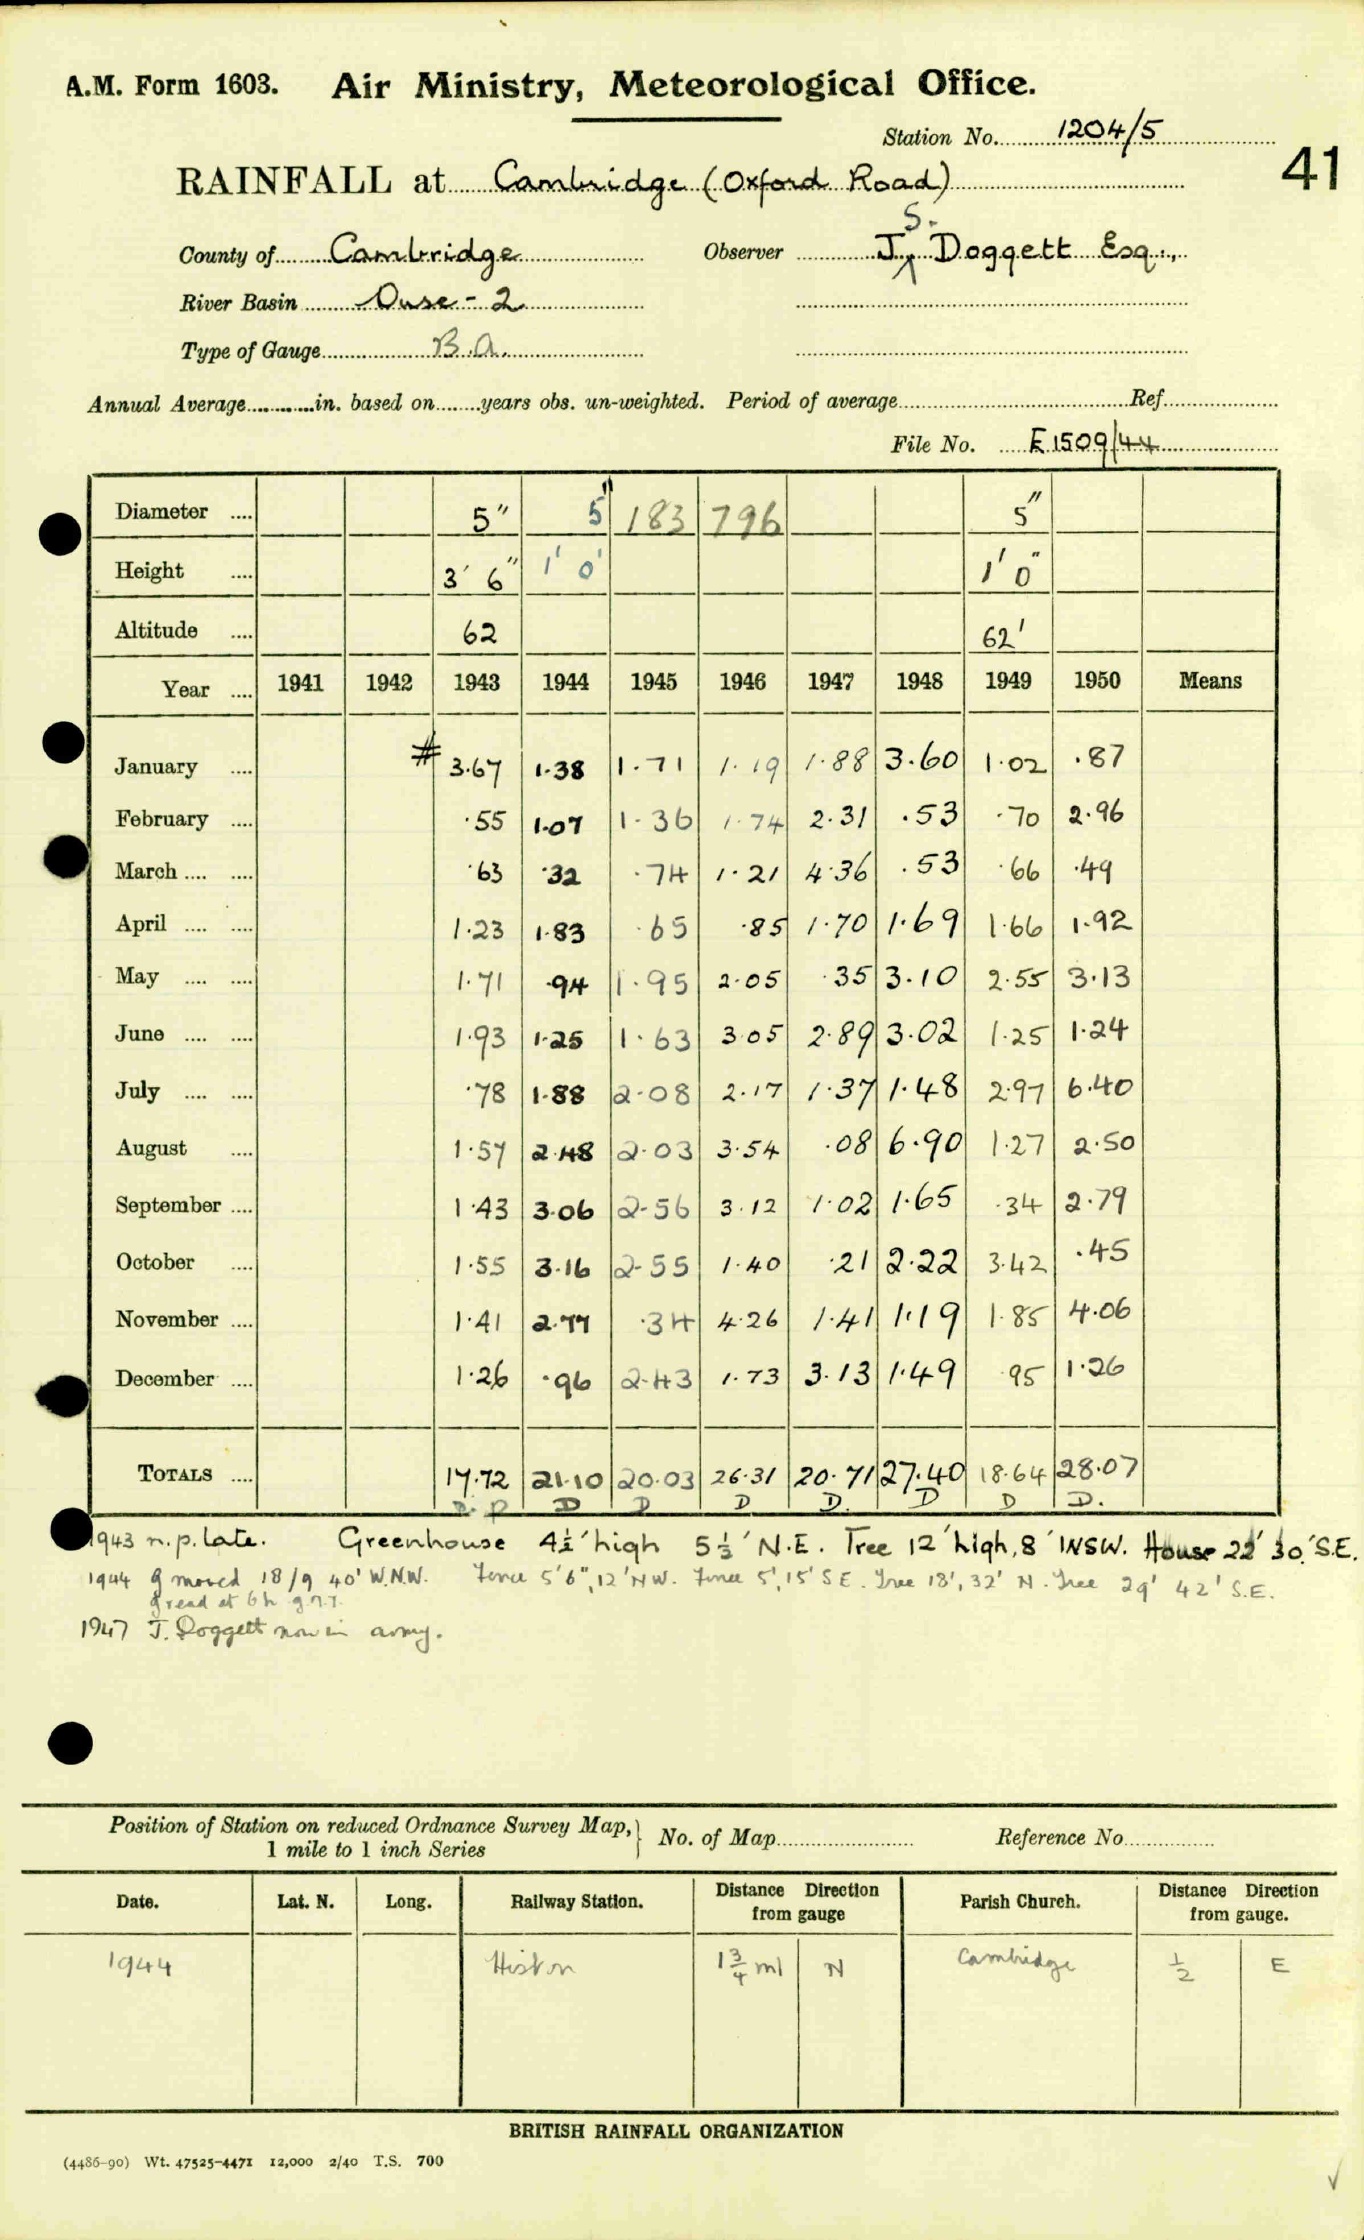 A.M. Form 1603. Air Ministry, Meteorological Office.
Station No. 1204/5
41
RAINFALL at Cambridge (Oxford Road)
County of Cambridge Observer J. S. Doggett Esq.,
River Basin Ouse - 2
Type of Gauge B.A.
Annual Average in. based on years obs. un-weighted. Period of average Ref.
File No. E1509/44
Diameter .... 5" 5" 183 796 5"
Height .... 3' 6" 1' 0' 1' 0"
Altitude .... 62 62'
Year .... 1941 1942 1943 1944 1945 1946 1947 1948 1949 1950 Means
January .... # 3.67 1.38 1.71 1.19 1.88 3.60 1.02 .87
February .... .55 1.07 1.36 1.74 2.31 .53 .70 2.96
March .... .... .63 .32 .74 1.21 4.36 .53 .66 .49
April .... .... 1.23 1.83 .65 .85 1.70 1.69 1.66 1.92
May .... .... 1.71 .94 1.95 2.05 .35 3.10 2.55 3.13
June .... .... 1.93 1.25 1.63 3.05 2.89 3.02 1.25 1.24
July .... .... .78 1.88 2.08 2.17 1.37 1.48 2.97 6.40
August .... 1.57 2.48 2.03 3.54 .08 6.90 1.27 2.50
September .... 1.43 3.06 2.56 3.12 1.02 1.65 .34 2.79
October .... 1.55 3.16 2.55 1.40 .21 2.22 3.42 .45
November .... 1.41 2.77 .34 4.26 1.41 1.19 1.85 4.06
December .... 1.26 .96 2.43 1.73 3.13 1.49 .95 1.26
TOTALS .... 17.72 21.10 20.03 26.31 20.71 27.40 18.64 28.07
D. P D D D D. D D D.
1943 n.p. late. Greenhouse 4½' high 5½' N.E. Tree 12' high, 8' WSW. House 22' 30' S.E.
1944 g moved 18/9 40' W.N.W. Fence 5'6", 12' NW. Fence 5', 15' SE. Tree 18', 32' N. Tree 29' 42' S.E.
g read at 6h
1947 J. Doggett now in army.
Position of Station on reduced Ordnance Survey Map, 1 mile to 1 inch Series } No. of Map Reference No
Date. Lat. N. Long. Railway Station. Distance Direction from gauge Parish Church. Distance Direction from gauge.
1944 Histon 1¾ ml N Cambridge ½ E
BRITISH RAINFALL ORGANIZATION
(4486-90) Wt. 47525-4471 12,000 2/40 T.S. 700